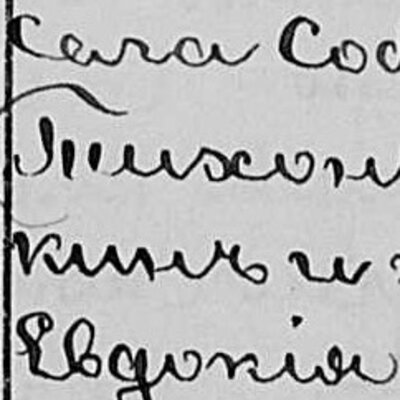 села Сос
Тихон
кинъ и
Евдокія